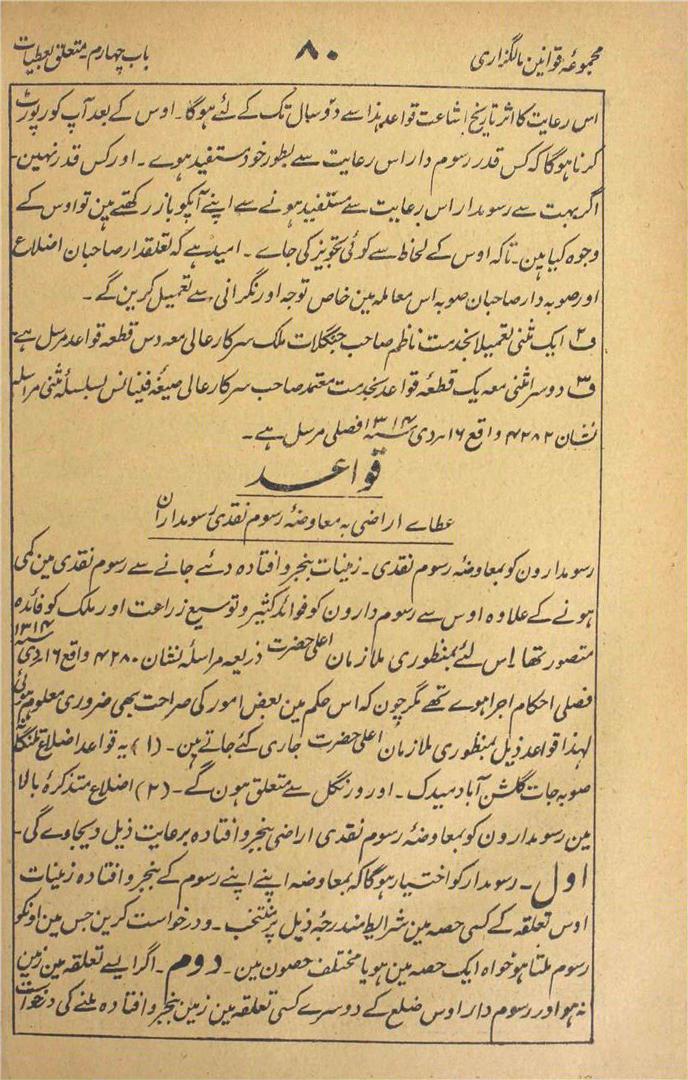 مجموعۂ قوانین مالگزاری
۸۰
باب چہارم ۔ متعلق بعطیات
اس رعایت کا اثر تاریخ اشاعت قواعد ہذا سے دو سال تک کے لئے ہوگا ۔ اوس کے بعد آپ کو رپورٹ
کرنا ہوگا کہ کس قدر رسوم دار اس رعایت سے بطور خود مستفید ہوے ۔ اور کس قدر نہین ۔
اگر بہت سے رسومدار اس رعایت سے مستفید ہونے سے اپنے آپکو باز رکھتے ہین تو اوس کے
وجوہ کیا ہین ۔ تاکہ اوس کے لحاظ سے کوئی تجویز کی جاے ۔ امید ہے کہ تعلقدار صاحبان اضلاع
اور صوبہ دار صاحبان صوبہ اس معاملہ مین خاص توجہ اور نگرانی سے تعمیل کرین گے ۔
ف۲ ایک مثنی تعمیلاً بخدمت ناظم صاحب جنگلات ملک سرکار عالی معہ دس قطعہ قواعد مرسل ہے ۔
ف۳ دوسرا مثنی معہ یک قطعہ قواعد بخدمت معتمد صاحب سرکار عالی صیغۂ فینانس بسلسلۂ مثنی مراسلہ
نشان ۴۲۸۲ واقع ۱۶ ۔ دی سنہ ۱۳۱۴ فصلی مرسل ہے ۔
قواعد
عطاے اراضی بہ معاوضۂ رسوم نقدی رسومداران
رسومدارون کو بمعاوضۂ رسوم نقدی ۔ زمینات بنجر و افتادہ دئے جانے سے رسوم نقدی مین کمی
ہونے کے علاوہ اوس سے رسوم دارون کو فوائد کثیر و توسیع زراعت اور ملک کو فائدہ
متصور تھا اس لئے بمنظوری ملازمان اعلی حضرت ذریعہ مراسلۂ نشان ۴۲۸۰ واقع ۱۶ دی سنہ ۱۳۱۴
فصلی احکام اجرا ہوے تھے مگر چون کہ اس حکم مین بعض امور کی صراحت بھی ضروری معلوم ہوئی
لہذا قواعد ذیل بمنظوری ملازمان اعلی حضرت جاری کئے جاتے ہین ۔ (۱) یہ قواعد اضلاع تلنگانہ
صوبہ جات گلشن آباد میدک ۔ اور ورنگل سے متعلق ہون گے ۔ (۲) اضلاع متذکرۂ بالا
مین رسومدارون کو بمعاوضۂ رسوم نقدی اراضی بنجر و افتادہ برعایت ذیل دیجاوے گی ۔
اول ۔ رسومدار کو اختیار ہوگا کہ بمعاوضہ اپنے اپنے رسوم کے بنجر و افتادہ زمینات
اوس تعلقہ کے کسی حصہ مین شرایط مندرجۂ ذیل پر منتخب ۔ و درخواست کرین جس مین اونکو
رسوم ملتا ہو خواہ ایک حصہ مین ہو یا مختلف حصون مین ۔ دوم ۔ اگر ایسے تعلقہ مین زمین
نہ ہو اور رسوم دار اوس ضلع کے دوسرے کسی تعلقہ مین زمین بنجر و افتادہ ملنے کی درخواست